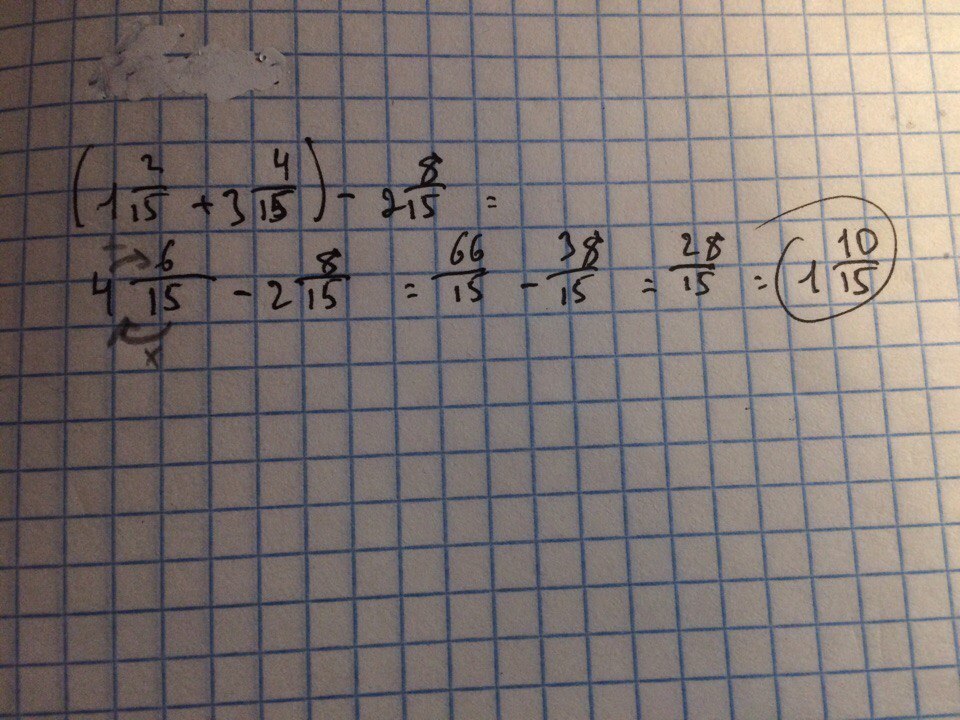 (1 2/15 + 3 4/15) - 2 8/15 =
4 6/15 - 2 8/15 = 66/15 - 38/15 = 28/15 = 1 10/15
x